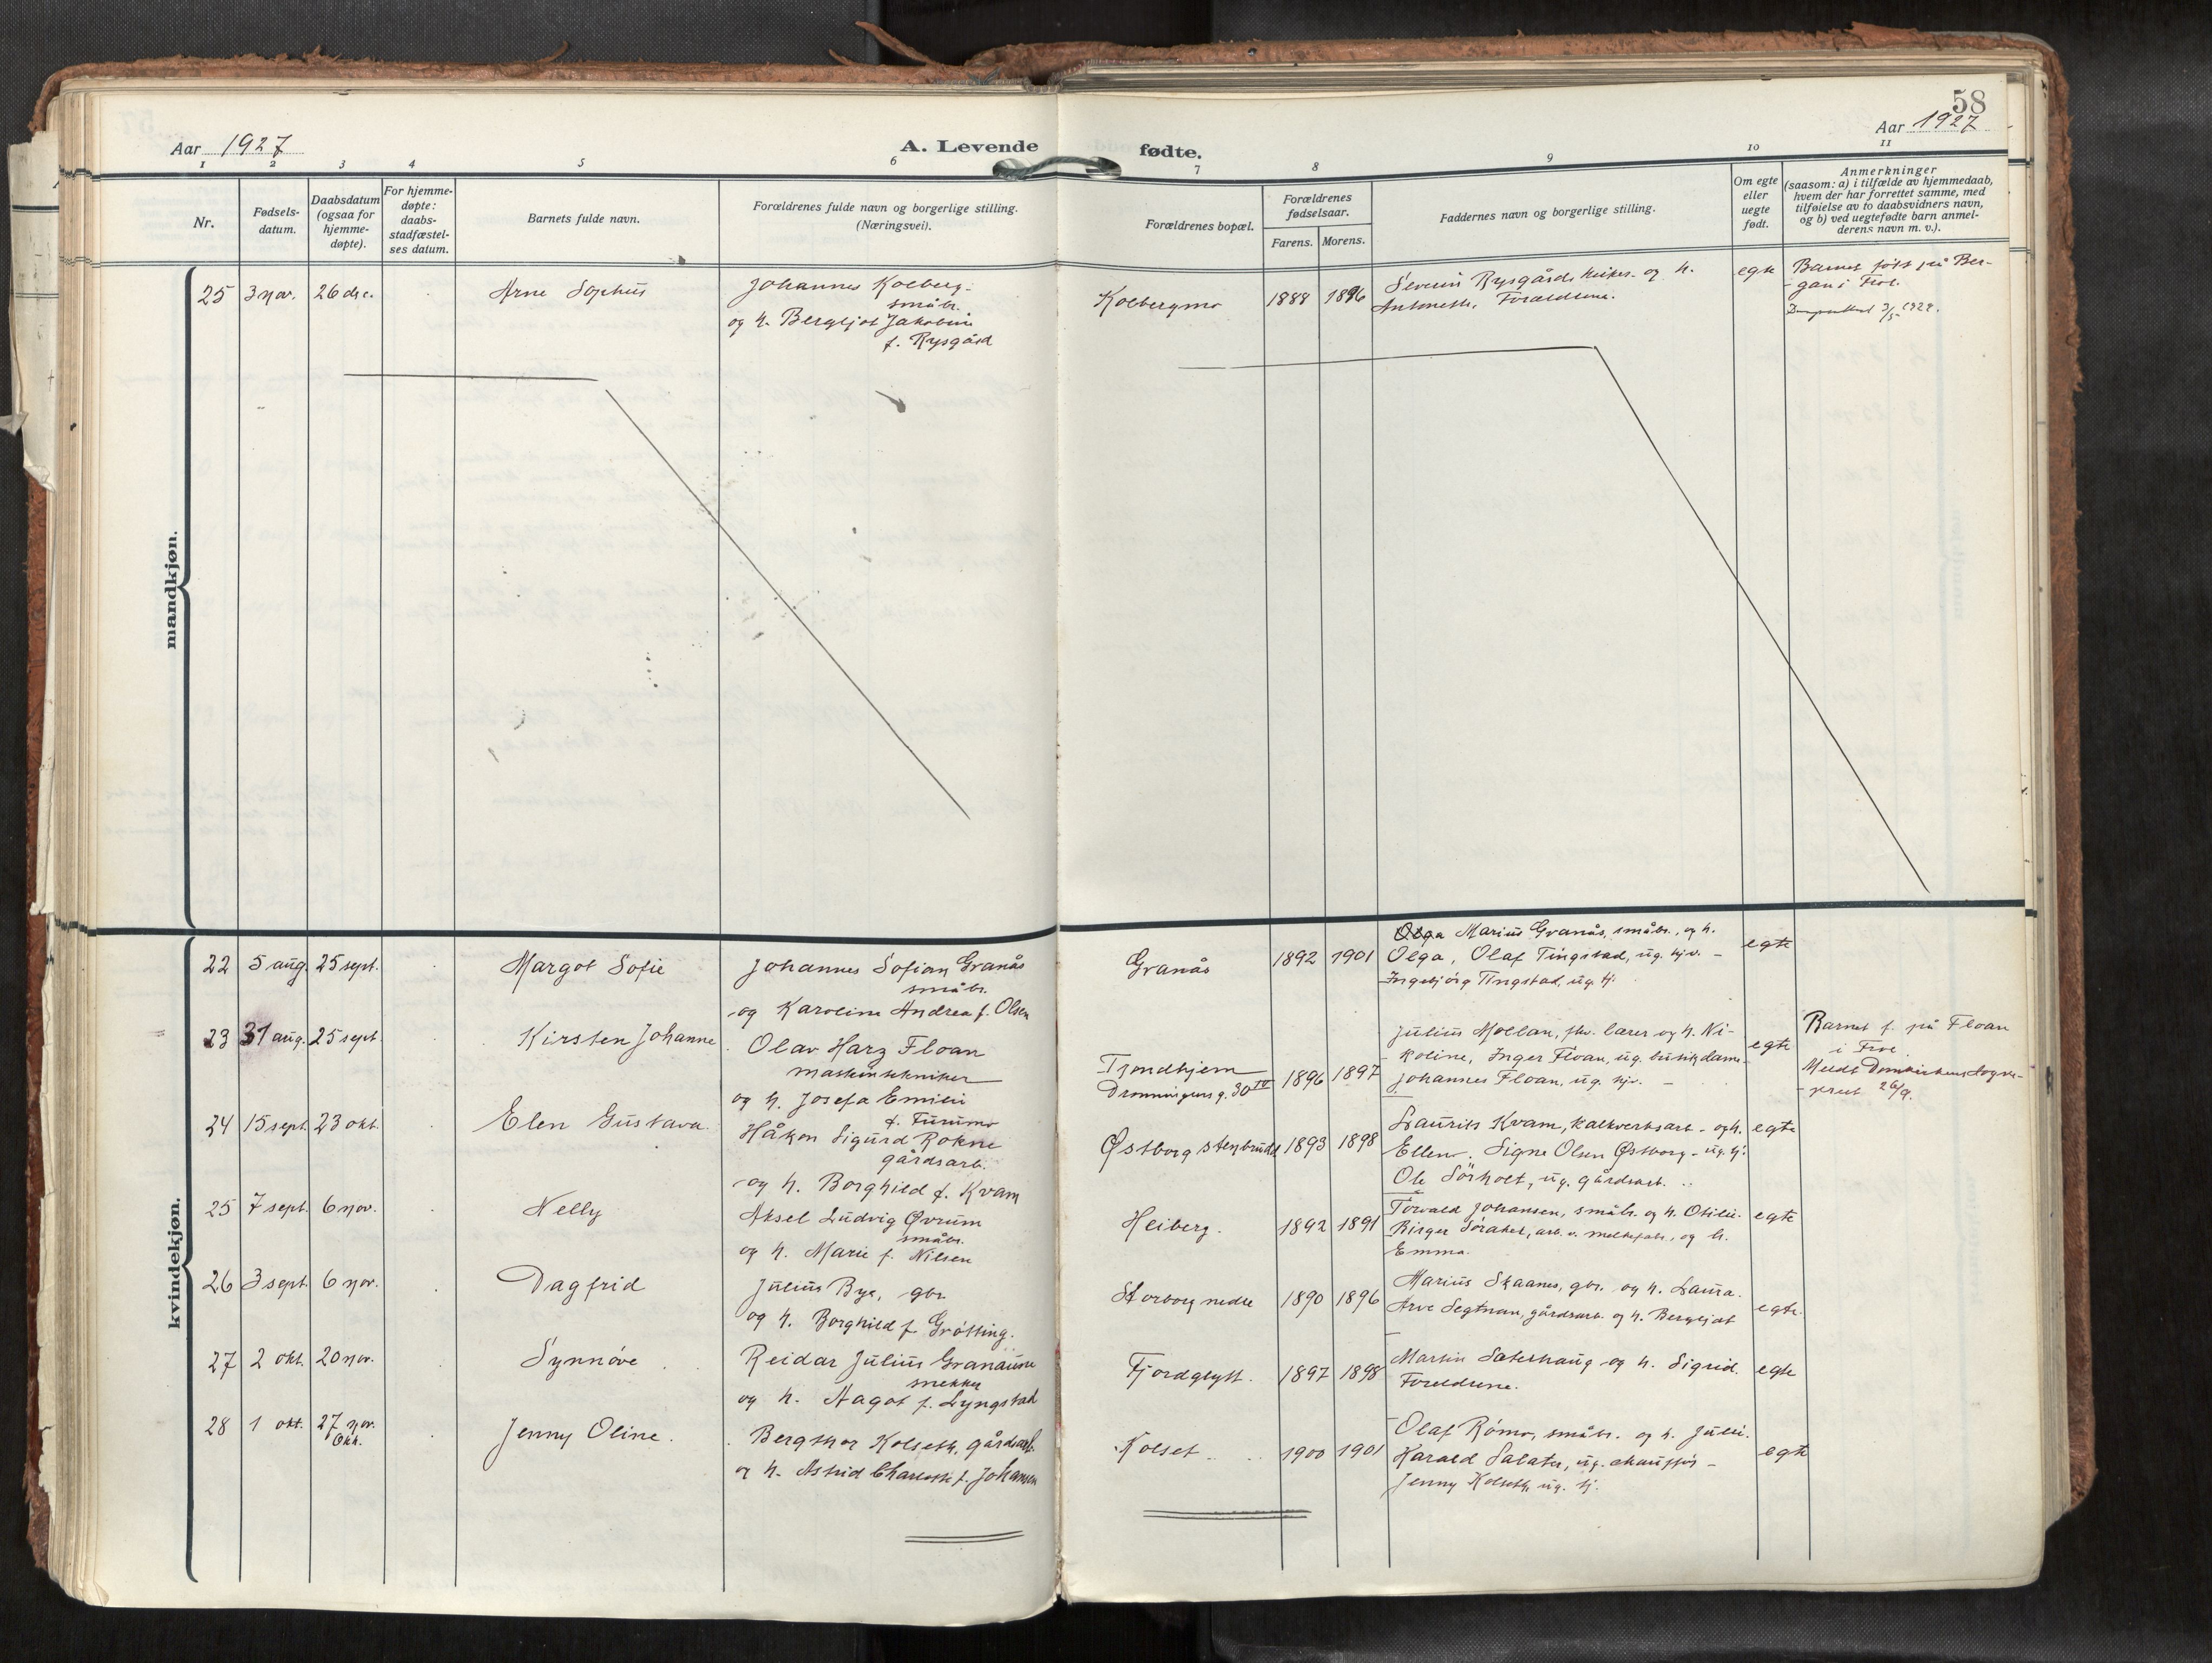 58
Aar 1927
A. Levende
fødte.
Aar 1927
1 2 3 4 5 6 7 8 9 10 11
Nr.
Fødsels-
datum.
Daabsdatum
(ogsaa for
hjemme-
døpte).
For hjemme-
døpte:
daabs-
stadfæstel-
ses datum.
Barnets fulde navn.
Forældrenes fulde navn og borgerlige stilling.
(Næringsvei).
Forældrenes bopæl.
Forældrenes
fødselsaar.
Farens. Morens.
Faddernes navn og borgerlige stilling.
Om egte
eller
uegte
født.
Anmerkninger
(saasom: a) i tilfælde av hjemmedaab,
hvem der har forrettet samme, med
tilføielse av to daabsvidners navn,
og b) ved uegtefødte barn anmel-
derens navn m. v.).
mandkjøn.
25 3 nov. 26 dec. Arne Sophus
Johannes Kolberg.
småbr.
og h. Bergljot Jakobine
f. Rysgård
Kolbergmo 1888 1896
Severin Rysgård, og h.
Antonette, Forældrene.
egte
Barnet født på Ber-
gan i Frol.
3/5 1929.
kvindekjøn.
22 5 aug. 25 sept. Margot Sofie
Johannes Sofian Granås
småbr.
og Karoline Andrea f. Olsen
Granås 1892 1901
Olga Marius Granås, småbr., og h.
Olga, Olaf Tingstad, ug. hjv. -
Ingebjörg Tingstad, ug. hj.
egte
23 31 aug. 25 sept. Kirsten Johanne
Olav Harz Floan
maskintekniker
og h. Josefa Emilie
f. Furumo
Trondhjem
Dronningens g. 30 IV
1896 1897
Julius Mollan, fhv. lærer og h. Ni-
koline, Inger Floan, ug. butikdame -
Johannes Floan, ug. hjv. -
egte
Barnet f. på Floan
i Frol.
Meldt Domkirkens sogne-
prest 26/9.
24 15 sept. 23 okt. Elen Gustava
Håkon Sigurd Rokne
gårdsarb.
og h. Borghild f. Kvam
Østborg stenbrudd 1893 1898
Laurits Kvam, kalkverksarb. og h.
Ellen. Signe Olsen Østborg - ug. hj.
Ole Sörholt, ug. gårdsarb.
egte
25 7 sept. 6 nov. Nelly
Aksel Ludvig Øvrum
småbr.
og h. Marie f. Nilsen
Heiberg. 1892 1891
Torvald Johansen, småbr. og h. Otilie.
Birger Söraker, arb. v. melkefabr., og h.
Emma.
egte
26 3 sept. 6 nov. Dagfrid
Julius Bye, gbr.
og h. Borghild f. Grötting.
Storborg nedre 1890 1896
Marius Skaanes, gbr. og h. Laura.
Arve Segtnan, gårdsarb. og h. Bergljot
egte.
27 2 okt. 20 nov. Synnöve
Reidar Julius Granaune
snekker
og h. Aagot f. Lyngstad
Fjordglytt. 1897 1898
Martin Saterhaug og h. Sigrid.
Foreldrene.
egte
28 1 okt. 27 nov.
Okk.
Jenny Oline.
Bergthor Kolseth, gårdsarb.
og h. Astrid Charlotte f. Johansen
Kolset. 1900 1901
Olaf Römo, småbr. og h. Julie.
Harald Salater, ug. chauffør -
Jenny Kolseth, ug. hj.
egte